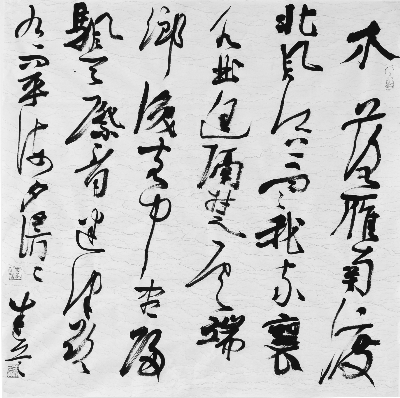 木落雁南渡
北風江上寒我家襄
水曲遥隔楚雲端
鄉淚客中盡孤
帆天際看迷津欲
有問平海夕漫々